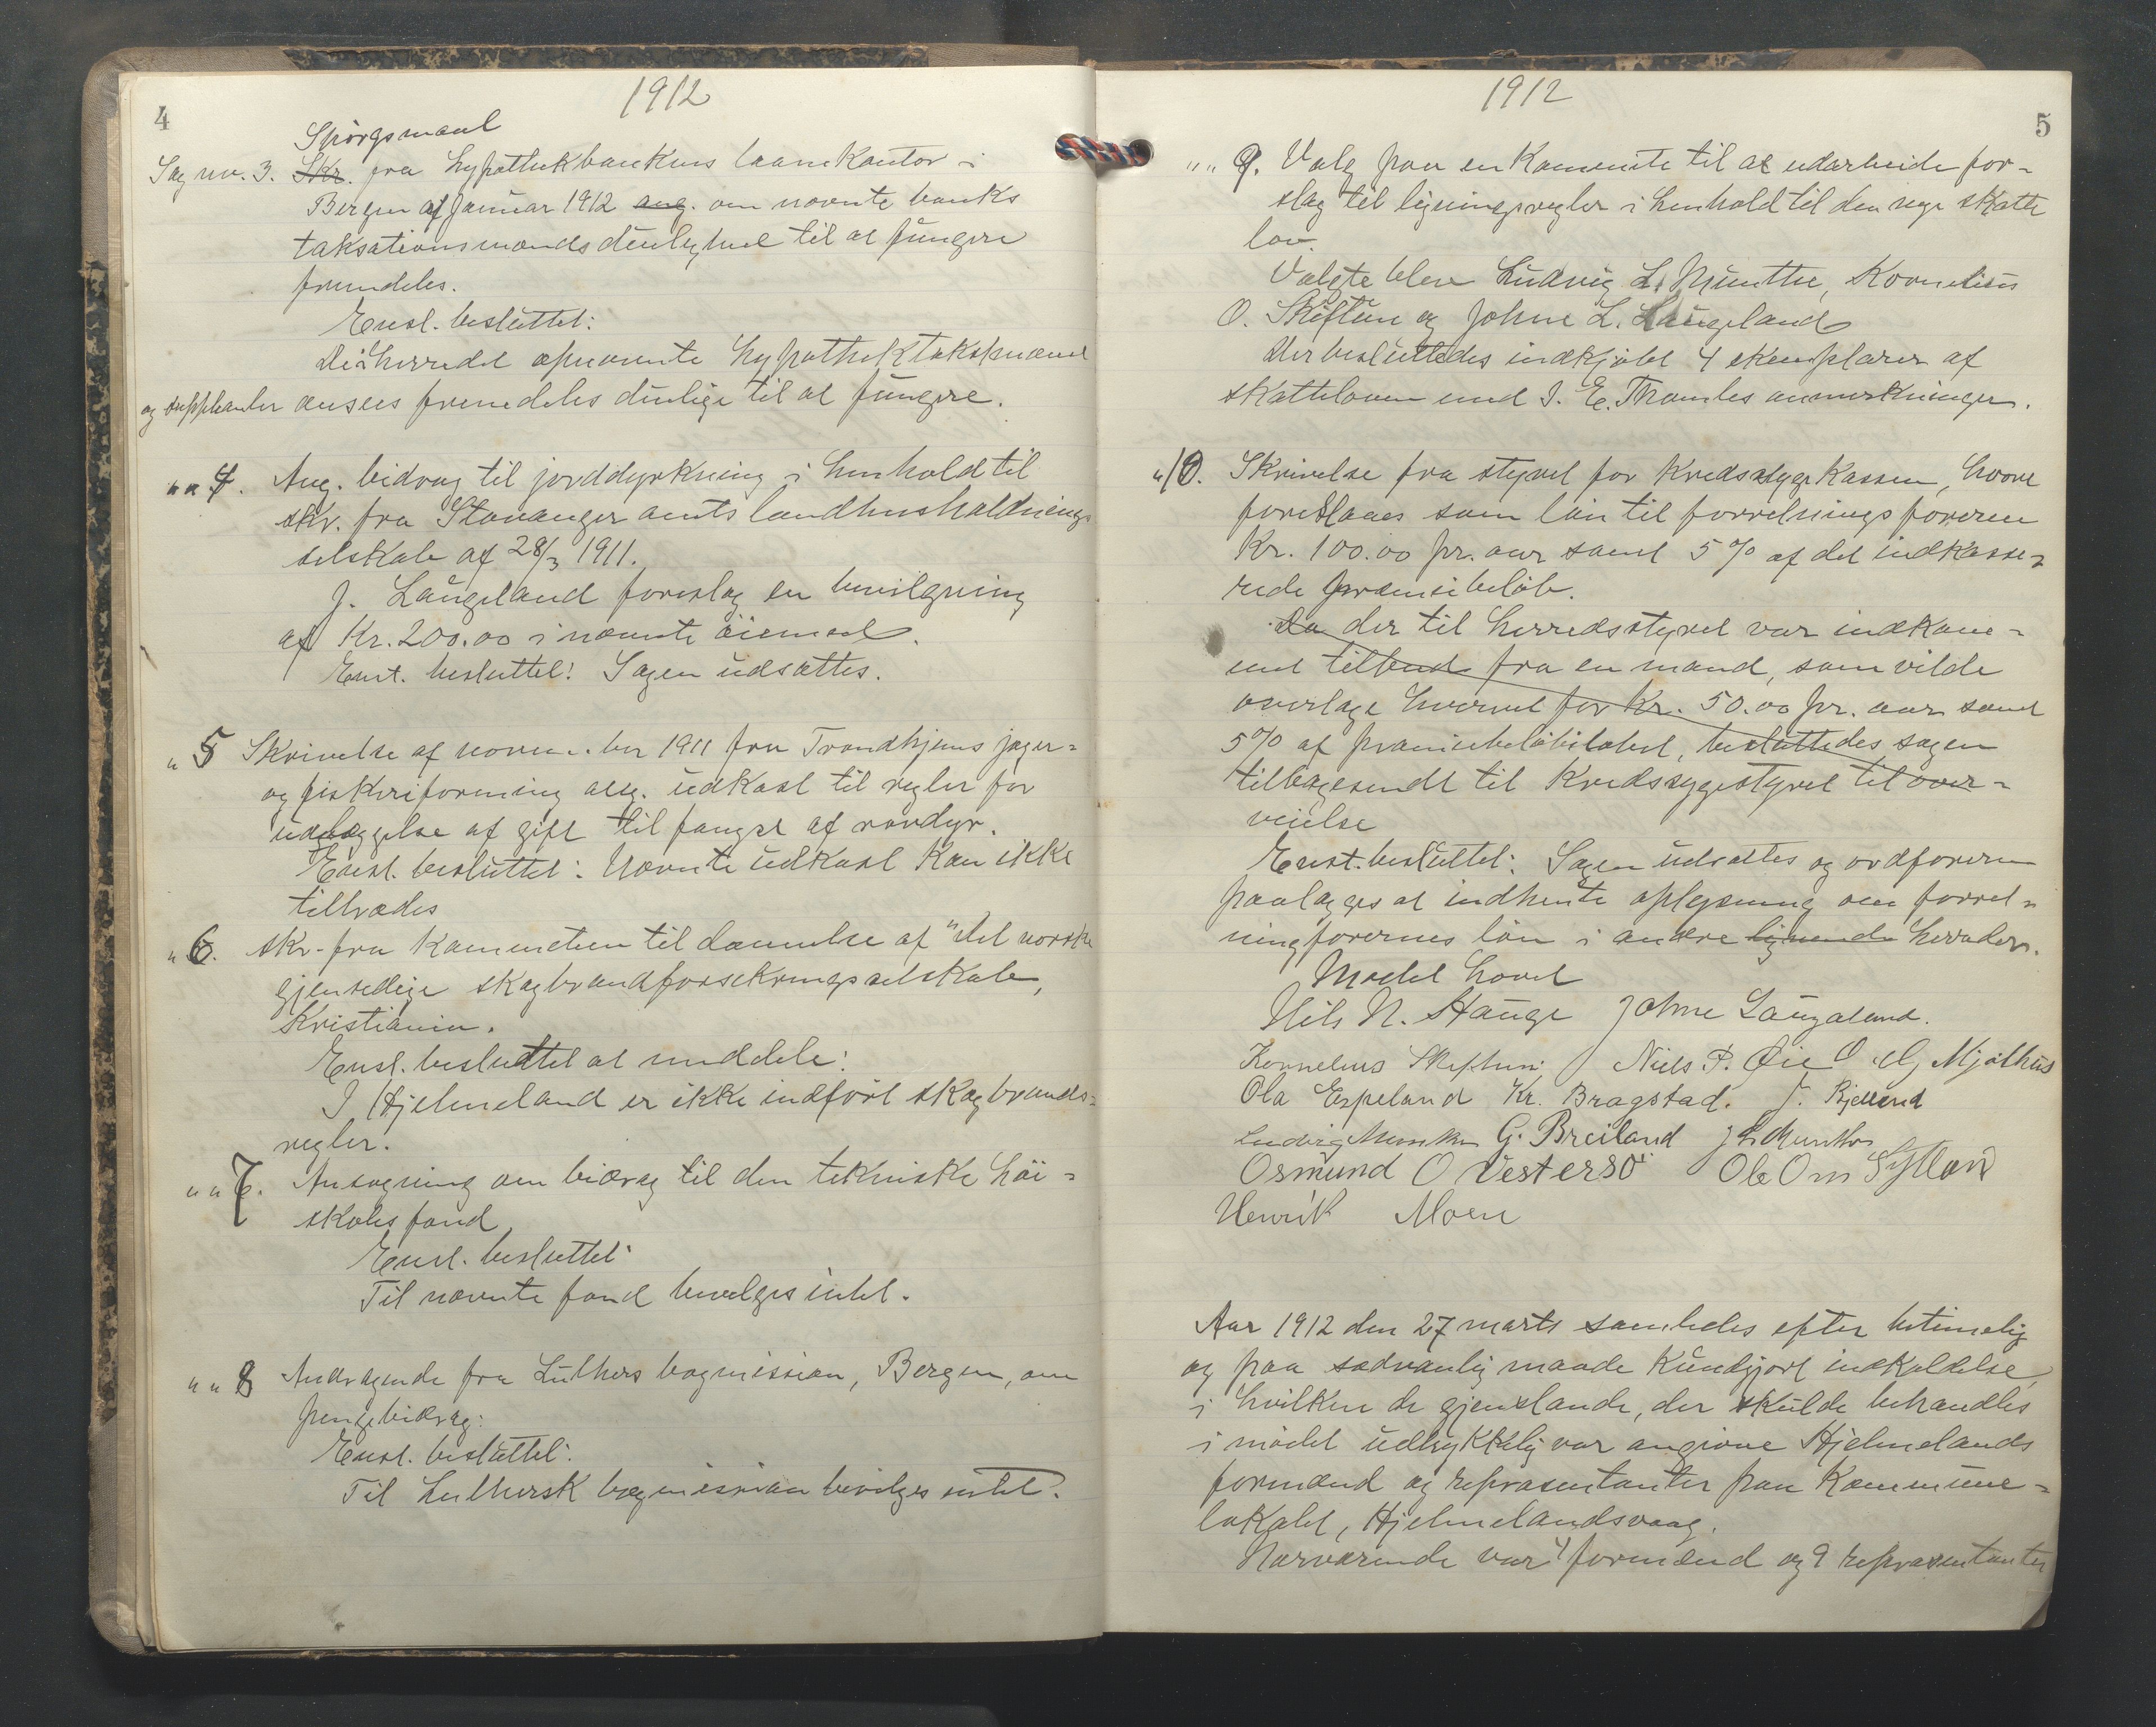 4
1912
Spörgsmaal
Sag nr. 3. Skr. fra hypothekbankens laanekontor i
Bergen af Januar 1912 ang. om nævnte banks
taksationsmænds duelighed til at fungere
fremdeles.
Enst. besluttet:
De i herredet opnævnte hypothektakstmænd
og suppleanter ansees fremdeles duelige til at fungere.
" " 4. Ang. bidrag til jorddyrkning i henhold til
skr. fra Stavanger amts landhusholdnings
selskab af 28/3 1911.
J. Laugeland foreslog en bevilgning
af Kr. 200.00 i nævnte öiemed.
Enst. besluttet: Sagen udsættes.
" 5 Skrivelse af november 1911 fra Trondhjems jæger-
og fiskeriforening ang. udkast til regler for
udlæggelse af gift til fangst af rovdyr.
Enst. besluttet: Nævnte udkast kan ikke
tiltrædes
" 6. Skr. fra Kommeteen til dannelse af "Det norske
gjensidige skogbrandforsekringsselskab,
Kristiania.
Enst. besluttet at meddele:
I Hjelmeland er ikke indført skogbrands-
regler.
" " 7. Ansøgning om bidrag til den tekniske höi-
skoles fond
Enst. besluttet:
Til nævnte fond bevilges intet.
" " 8 Andragende fra Luthers bogmission, Bergen, om
pengebidrag:
Enst. besluttet:
Til Luthersk bogmission bevilges intet.
1912
5
" " 9. Valg paa en Komemite til at udarbeide for-
slag til ligningsregler i henhold til den nye skatte
lov.
Valgte blev Ludvig L. Munthe, Kornelius
O. Skiftun og Johne L. Laugeland
Der besluttedes indkjøbt 4 eksemplarer af
skatteloven med I. E. Thomles anmerkninger.
" 10. Skrivelse fra styret for Kredssygekassen, hvori
foreslaaes som lön til forretningsföreren
Kr. 100.00 pr. aar samt 5% af det indkasse-
rede præmiebeløb.
Da der til herredsstyret var indkom-
met tilbud fra en mand, som vilde
overtage hvervet for Kr. 50.00 pr. aar samt
5% af præmiebeløbet, besluttedes sagen
tilbagesendt til Kredssygestyret til over-
veielse
Enst. besluttet: Sagen udsættes og ordføreren
paalægges at indhente oplysning om forret-
ningførernes lön i andre lignende herreder.
Mødet hævet
Nils N. Hauge Johne Laugaland.
Kornelius Skiftun Niels P. Øie O. G. Mjølhus
Ola Espeland Kr. Bragstad. J. Kjelland
Ludvig Munthe G. Breiland J L Munthe
Osmund O Vestersö Ole Om Sytlan
Henrik Moen
Aar 1912 den 27 marts samledes efter betimelig
og paa sædvanlig maade kundgjort indkaldelse,
i hvilken de gjenstande, der skulde behandles
i mødet udtrykkelig var angivne Hjelmelands
formænd og repræsentanter paa Kommune-
lokalet, Hjelmelandsvaag.
Nærværende var 4 formænd og 9 repræsentanter